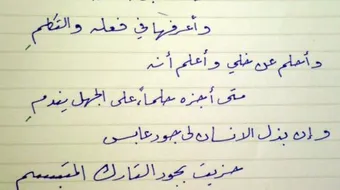 وأعرفها في فعله والتكلمِ
وأحلم عن خلي وأعلم أنه
متى أجزه حلماً على الجهل يندمِ
وإن بذل الانسان لي جود عابس
جزيت بجود التارك المتبسم